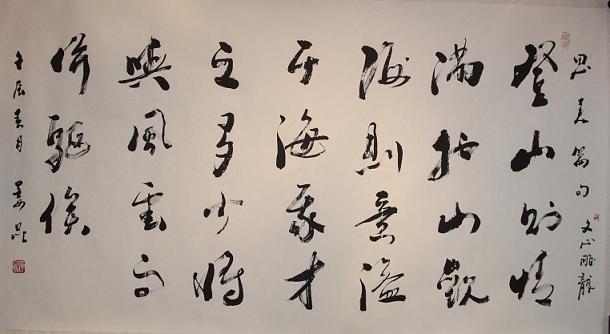 思篇句 文心雕龍
登山則情
滿於山觀
海則意溢
于海我才
之多少將
與風雲而
併驅矣
壬辰春月